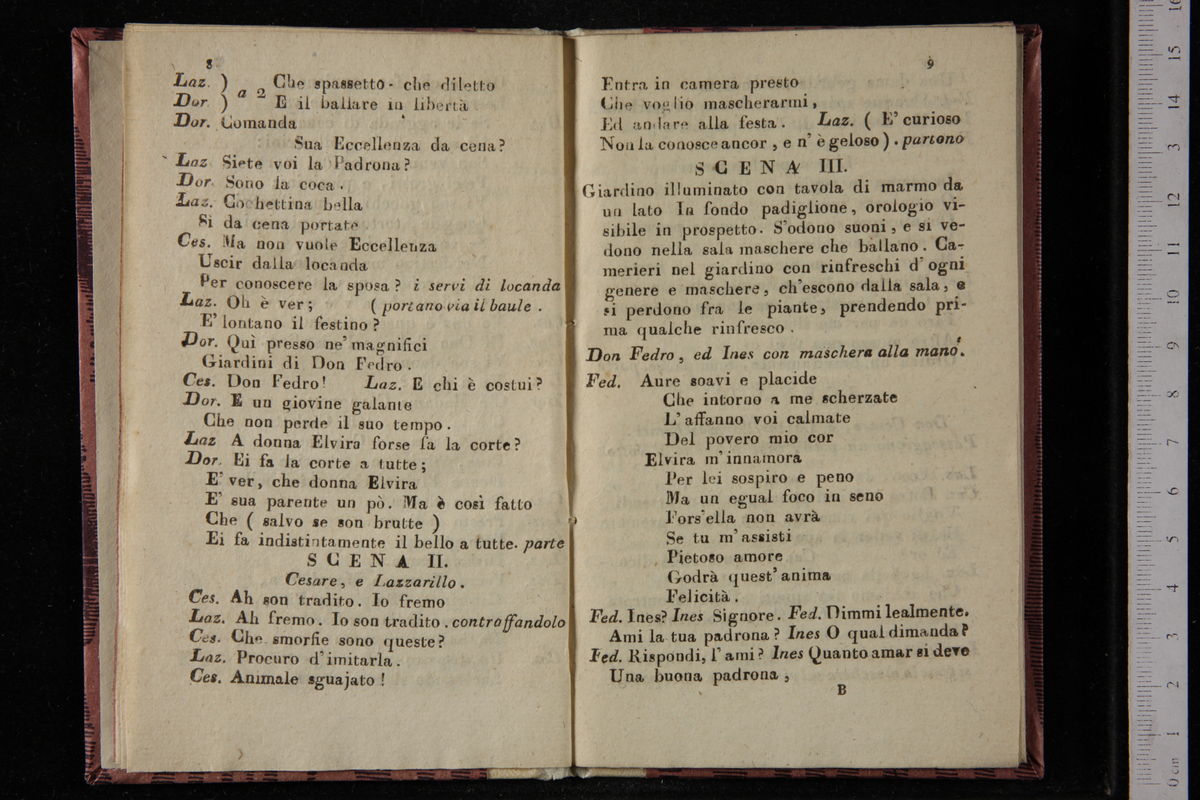 8
Laz. ) a 2 Che spassetto - che diletto
Dor. ) E il ballare in libertà
Dor. Comanda
Sua Eccellenza da cena?
Laz Siete voi la Padrona?
Dor. Sono la coca .
Laz. Cochettina bella
Si da cena portate
Ces. Ma non vuole Eccellenza
Uscir dalla locanda
Per conoscere la sposa ? i servi di locanda
Laz. Oh è ver ; ( portano via il baule .
E' lontano il festino ?
Dor. Qui presso ne' magnifici
Giardini di Don Fedro .
Ces. Don Fedro! Laz. E chi è costui?
Dor. E un giovine galante
Che non perde il suo tempo .
Laz A donna Elvira forse fa la corte?
Dor. Ei fa la corte a tutte ;
E' ver, che donna Elvira
E' sua parente un pò. Ma è così fatto
Che ( salvo se son brutte )
Ei fa indistintamente il bello a tutte. parte
SCENA II.
Cesare, e Lazzarillo .
Ces. Ah son tradito. Io fremo
Laz. Ah fremo. Io son tradito . contraffandolo
Ces. Che smorfie sono queste?
Laz. Procuro d'imitarla .
Ces. Animale sguajato !
9
Entra in camera presto
Che voglio mascherarmi ,
Ed andare alla festa . Laz. ( E' curioso
Non la conosce ancor , e n' è geloso ) . partono
SCENA III.
Giardino illuminato con tavola di marmo da
un lato In fondo padiglione, orologio vi-
sibile in prospetto. S'odono suoni , e si ve-
dono nella sala maschere che ballano . Ca-
merieri nel giardino con rinfreschi d' ogni
genere e maschere, ch'escono dalla sala, e
si perdono fra le piante, prendendo pri-
ma qualche rinfresco .
Don Fedro , ed Ines con maschera alla mano.
Fed. Aure soavi e placide
Che intorno a me scherzate
L' affanno voi calmate
Del povero mio cor
Elvira m'innamora
Per lei sospiro e peno
Ma un egual foco in seno
Fors'ella non avrà
Se tu m'assisti
Pietoso amore
Godrà quest' anima
Felicità .
Fed. Ines? Ines Signore. Fed. Dimmi lealmente.
Ami la tua padrona ? Ines O qual dimanda?
Fed. Rispondi, l' ami? Ines Quanto amar si deve
Una buona padrona ,
B